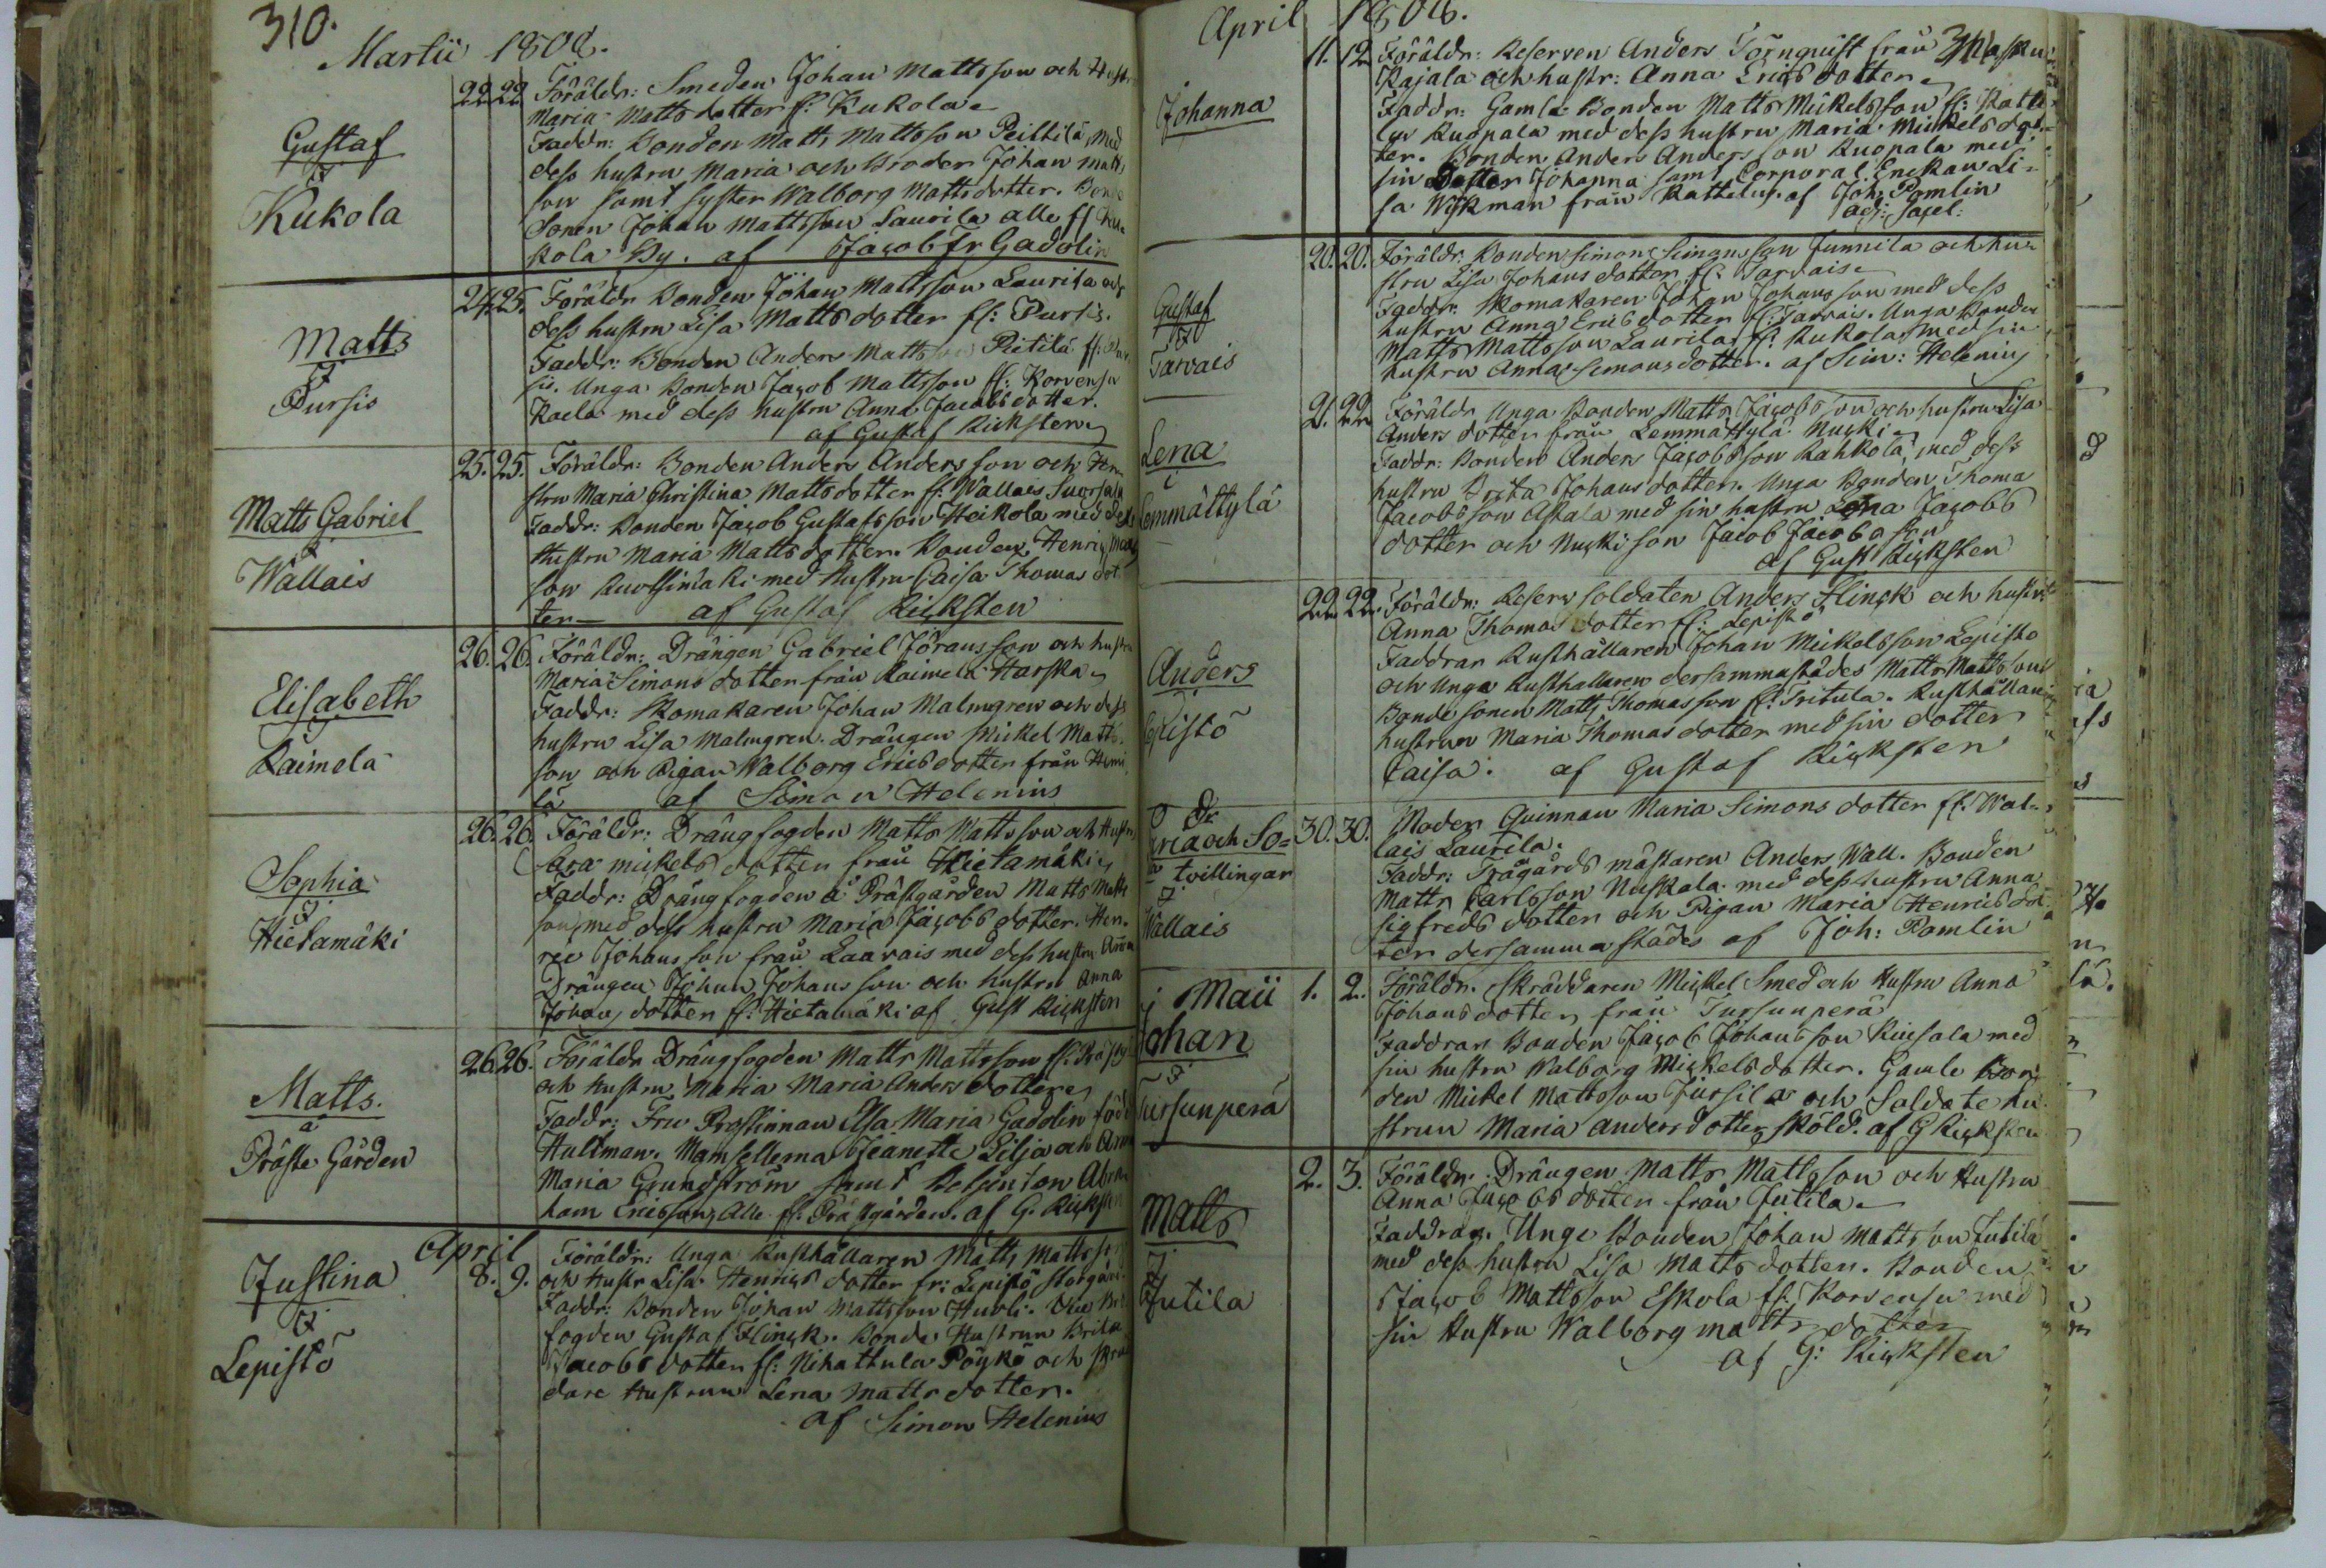 310.
Martii 1808.
Gustaf
i
Kukola
22. 22. Föräldr: Smeden Johan Mattsson och Hustr
Maria Mattsdotter fr: Kukola
Faddr: Bonden Matts Mattsson Peiltilä med
dess hustru Maria och Broder Johan Matts
son samt syster Walborg Mattsdotter. Bonde
Sonen Johan Mattsson Laurila alle fr Ku-
kola By. af Jacob Fr Gadolin
Matts
i
Pursis
24. 25. Föräldr Bonden Johan Mattsson Laurila och
dess hustru Lisa Matts dotter fr: Pursis.
Faddr: Bonden Anders Mattsson Pietilä fr: Pur-
sis. Unga Bonden Jacob Mattsson fr: Korvensu
Kaela med dess hustru Anna Jacobsdotter.
af Gustaf Ricksten
Matts Gabriel
i
Wallais
25. 25. Föräldr: Bonden Anders Andersson och Hu-
stru Maria Christina Mattsdotter fr: Wallais Suorsala
Faddr: Bonden Jacob Gustafsson Heikola med dess
Hustru Maria Mattsdotter. Bonden Henric Matts
son Ruossimäki med Hustru Caisa Thomas dot-
ter af Gustaf Ricksten
Elisabeth
i
Raimela
26. 26. Föräldr: Drängen Gabriel Göransson och hustru
Maria Simons dotter från Raimela Harska
Faddr: Skomakaren Johan Malmgren och dess
hustru Lisa Malmgren. Drängen Mickel Matts-
son och Pigan Walborg Ericsdotter från Heni
lä af Simon Helenius
Sophia
i
Hietamäki
26. 26. Föräldr: Drängfogden Matts Mattsson och Hustru
Cara Mickels dotter från Hietamäki
Faddr: Drängfogden å Prästgården Matts Matts
son med dess hustru Maria Jacobsdotter. Hen-
ric Johansson från Laarais med dess hustru Anna
Drängen Johan Johansson och hustru Anna
Johans dotter fr: Hietamäki af Gust Ricksten
Matts.
å
Präste Gården
26. 26. Föräldr Drängfogden Matts Mattsson fr: Prästg
och Hustru Maria Maria Anders dotter
Faddr: Fru Prostinnan Elsa Maria Gadolin född
Hultman. Mamsellerna Jeanette Lilja och Anna
Maria Grundström samt Betjenten Abra-
ham Ericsson, Alle fr: Prästgården. af G. Ricksten
April
Justina
i
Lepistö
8. 9. Föräldr: Unga Rusthållaren Matts Mattsson
och Hustr Lisa Henrics dotter fr: Lepistö storgård
Faddr: Bonden Johan Mattsson Huvli.
fogden Gustaf Flinck. Bonde Hustrun Brita
Jacobsdotter fr: Nihattula Pöykö och Skräd
dare Hustrun Lena Matts dotter.
af Simon Helenius
April 1808.
Johanna
11. 12. Föräldr: Reserven Anders Törnquist från Masku
Kajala och hustr: Anna Erics dotter
Faddr: Gamla Bonden Matts Mickelsson fr: Katte
lus Ruopala med dess hustru Maria Mickels dot-
ter. Bonden Anders Andersson Ruopala med
sin Dotter Johanna samt Corporal Enckan Li-
sa Wikman från Kattelus. af Joh: Pomlin
adj: sacel:
Gustaf
i
Tarvais
20. 20. Föräldr. Bonden Simon Simonsson Junnila och hu-
stru Lisa Johans dotter fr. Tarvais
Faddr: Skomakaren Johan Johansson med dess
hustru Anna Ericsdotter fr: Tarvais. Unga Bonden
Matts Mattsson Laurila fr: Kukola med sin
hustru Anna Simonsdotter. af Sim: Helenius
Lena
i
Lemmättylä
21. 22. Föräldr Unga Bonden Matts Jacobsson och hustru Lisa
Anders dotter från Lemmättylä Nucki
Faddr: Bonden Anders Jacobsson Kahkola med dess
hustru Brita Johans dotter. Unga Bonden Thoma
Jacobsson Askala med sin hustru Lena Jacobs
dotter och Nucki son Jacob Jacobsson
af Gust Ricksten
Anders
i
Lepistö
22. 22. Föräldr: Reserv soldaten Anders Flinck och hustru
Anna Thomas dotter fr: Lepistö
Faddrar Rusthållaren Johan Mickelsson Lepistö
och Unga Rusthallaren dersammastädes Matts Mattsson
Bonde sonen Matts Thomasson fr: Tritula. Rusthållare
hustrun Maria Thomasdotter med sin dotter
Caisa. af Gustaf Ricksten
ria och So-
a tvillingar
i
Wallais
30. 30. Moder Quinnan Maria Simons dotter fr: Wal-
lais Laurila.
Faddr: Trägårds mästaren Anders Wall. Bonden
Matts Carlsson Nuskala med dess hustru Anna
Sigfreds dotter och Pigan Maria Henrics dot-
ter dersammastädes af Joh: Pomlin
Maii
Johan
i
Tursunperä
1. 2. Föräldr. Skräddaren Mickel Smed och Hustru Anna
Johansdotter från Tursunperä
Faddrar Bonden Jacob Johansson Kuisala med
sin hustru Walborg Mickelsdotter. Gamle Bon-
den Mickel Mattsson Jussila och Soldate hu-
strun Maria Andersdotter Sköld. af G Ricksten
Matts
i
Jutila
2. 3. Föräldr: Drängen Matts Mattsson och Hustru
Anna Jacobsdotter från Jutila
Faddrar. Unge Bonden Johan Mattsson Jutila
med dess hustru Lisa Matts dotter. Bonden
Jacob Mattsson Eskola fr: Korvensu med
sin Hustru Walborg Matts dotter
af G: Ricksten